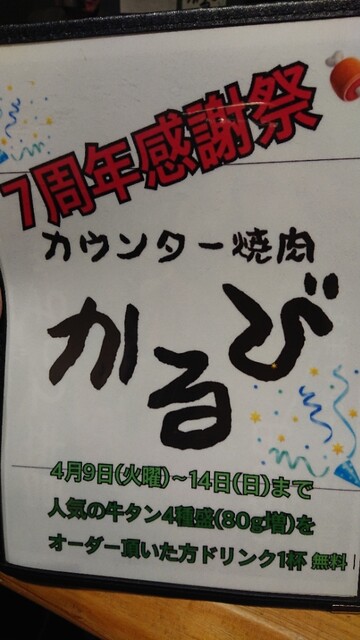 7周年感謝祭
カウンター焼肉
かるび
4月9日(火曜)～14日(日)まで
人気の牛タン4種盛(80g増)を
オーダー頂いた方ドリンク1杯 無料!